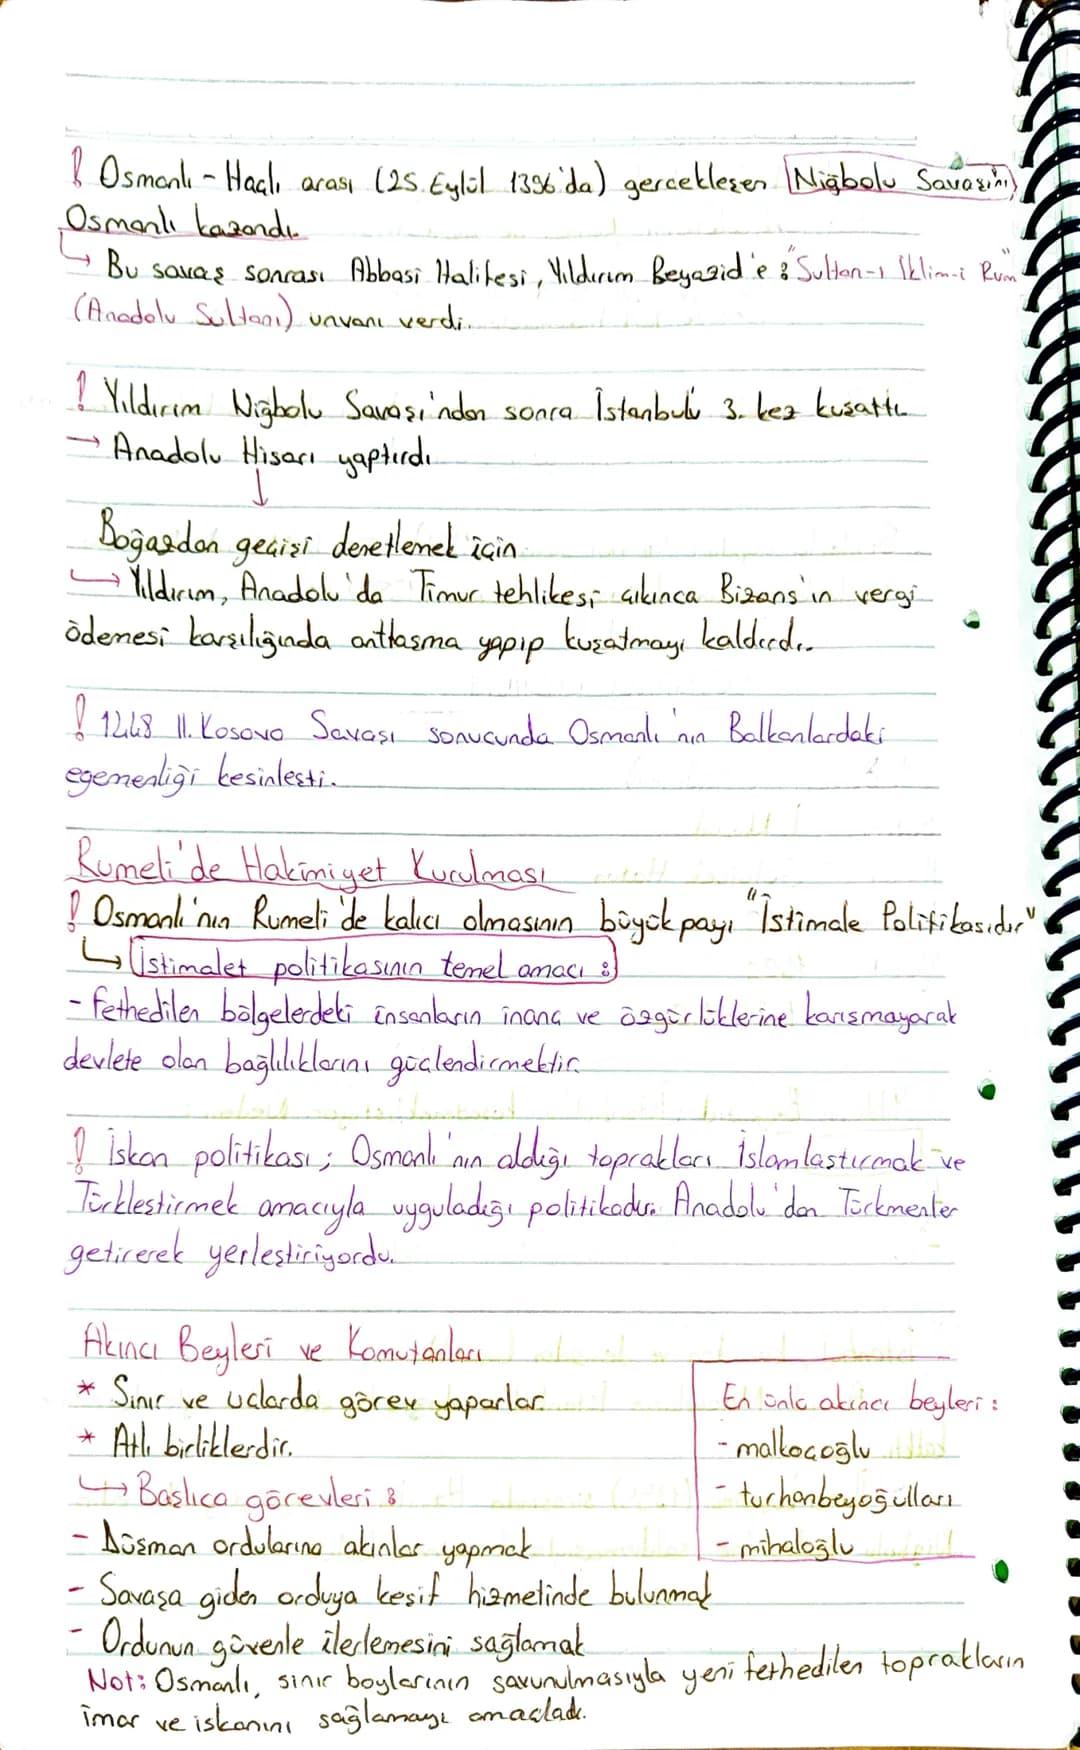 ! Osmanlı - Haçlı arası (25 Eylül 1396'da) gerçekleşen Niğbolu Savaşını
Osmanlı kazandı.
↳ Bu savaş sonrası Abbasi Halifesi, Yıldırım Beyazid'e : "Sultan-ı İklim-i Rum"
(Anadolu Sultanı) unvanı verdi.
! Yıldırım Niğbolu Savaşı'ndan sonra İstanbul'u 3. kez kuşattı.
→ Anadolu Hisarı yaptırdı
↓
Boğazdan geçişi denetlemek için
↳ Yıldırım, Anadolu'da Timur tehlikesi çıkınca Bizans'ın vergi
ödemesi karşılığında antlaşma yapıp kuşatmayı kaldırdı.
! 1448 II. Kosova Savaşı sonucunda Osmanlı'nın Balkanlardaki
egemenliği kesinleşti.
Rumeli'de Hakimiyet Kurulması
! Osmanlı'nın Rumeli'de kalıcı olmasının büyük payı "İstimale Politikasıdır"
↳ İstimalet politikasının temel amacı :
- Fethedilen bölgelerdeki insanların inanç ve özgürlüklerine karışmayarak
devlete olan bağlılıklarını güçlendirmektir.
! İskan politikası; Osmanlı'nın aldığı toprakları İslamlaştırmak ve
Türkleştirmek amacıyla uyguladığı politikadır. Anadolu'dan Türkmenler
getirerek yerleştiriyordu.
Akıncı Beyleri ve Komutanları
* Sınır ve uçlarda görev yaparlar.
* Atlı birliklerdir.
↳ Başlıca görevleri :
- Düşman ordularına akınlar yapmak
- Savaşa giden orduya keşif hizmetinde bulunmak
- Ordunun güvenle ilerlemesini sağlamak
Not: Osmanlı, sınır boylarının savunulmasıyla yeni fethedilen toprakların
imar ve iskanını sağlamayı amaçladı.
En ünlü akıncı beyleri :
- malkoçoğlu
- turhanbeyoğulları
- mihaloğlu